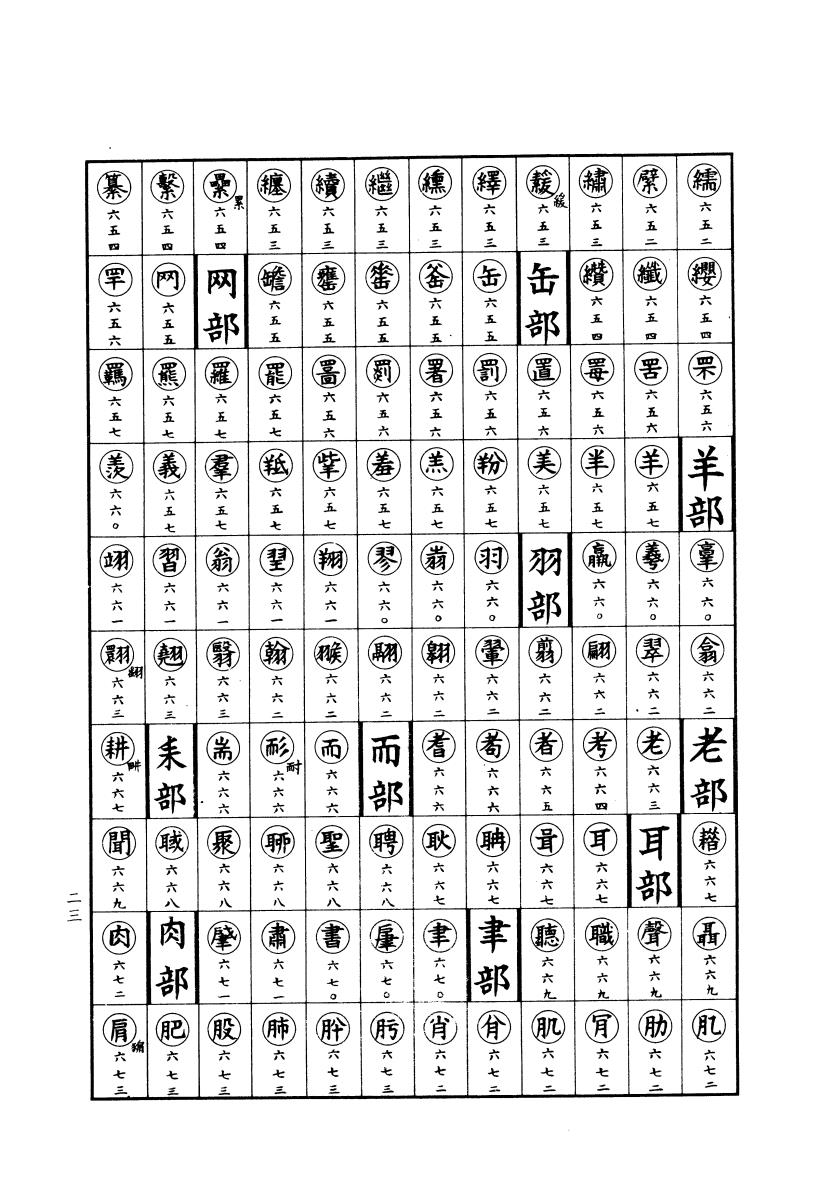 繻六五二 繴六五二 繡六五三 緩六五三 繹六五三 纁六五三 繼六五三 續六五三 纏六五三 纍累六五四 繫六五四 纂六五四
纓六五四 纖六五四 纘六五四 缶部 缶六五五 六五五 六五五 罋六五五 六五五 网部 网六五五 罕六五六
罘六五六 罟六五六 六五六 置六五六 罰六五六 署六五六 六五六 六五六 罷六五七 羅六五七 羆六五七 羈六五七
羊部 羊六五七 羋六五七 美六五七 羒六五七 羔六五七 羞六五七 六五七 羝六五七 羣六五七 義六五七 羨六六〇
六六〇 羲六六〇 羸六六〇 羽部 羽六六〇 六六〇 翏六六〇 翔六六一 翌六六一 翁六六一 習六六一 翊六六一
翕六六二 翠六六二 翩六六二 翦六六二 翬六六二 翱六六二 翮六六二 翭六六二 翰六六二 翳六六三 翹六六三 六六三
老部 老六六三 考六六四 者六六五 耇六六六 耆六六六 而部 而六六六 耏耐六六六 耑六六六 耒部 耕畊六六七
六六七 耳部 耳六六七 六六七 聃六六七 耿六六七 聘六六八 聖六六八 聊六六八 聚六六八 六六八 聞六六九
聶六六九 聲六六九 職六六九 聽六六九 聿部 聿六七〇 六七〇 書六七〇 肅六七一 肇六七一 肉部 肉六七二
肊六七二 肋六七二 肎六七二 肌六七二 六七二 肖六七二 六七三 肝六七三 肺六七三 股六七三 肥六七三 肩六七三
二三